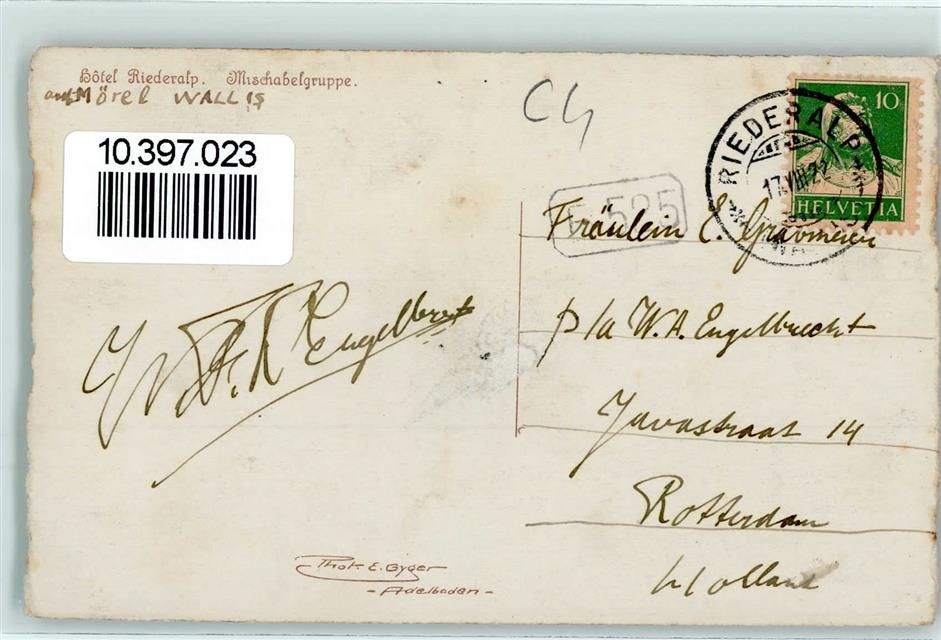 Hôtel Riederalp. Mischabelgruppe.
auf Mörel WALLIS
10.397.023
C4
10
HELVETIA
RIEDERALP
17.VIII.22
525
Fräulein E. Gravmeier
p/a W.A. Engelbrecht
Javastraat 14
Rotterdam
Holland
W.A. Engelbrecht
Phot. E. Gyger
- Adelboden -